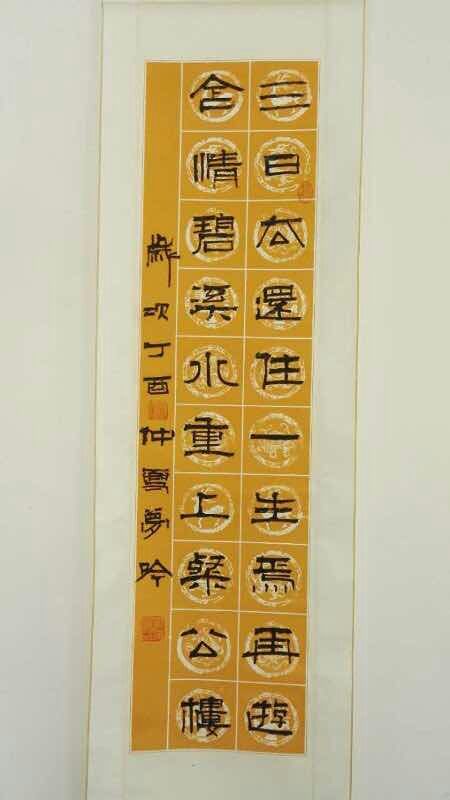 三日去還住一生焉再遊
含情碧溪水重上粲公樓
歲次丁酉仲夏夢吟